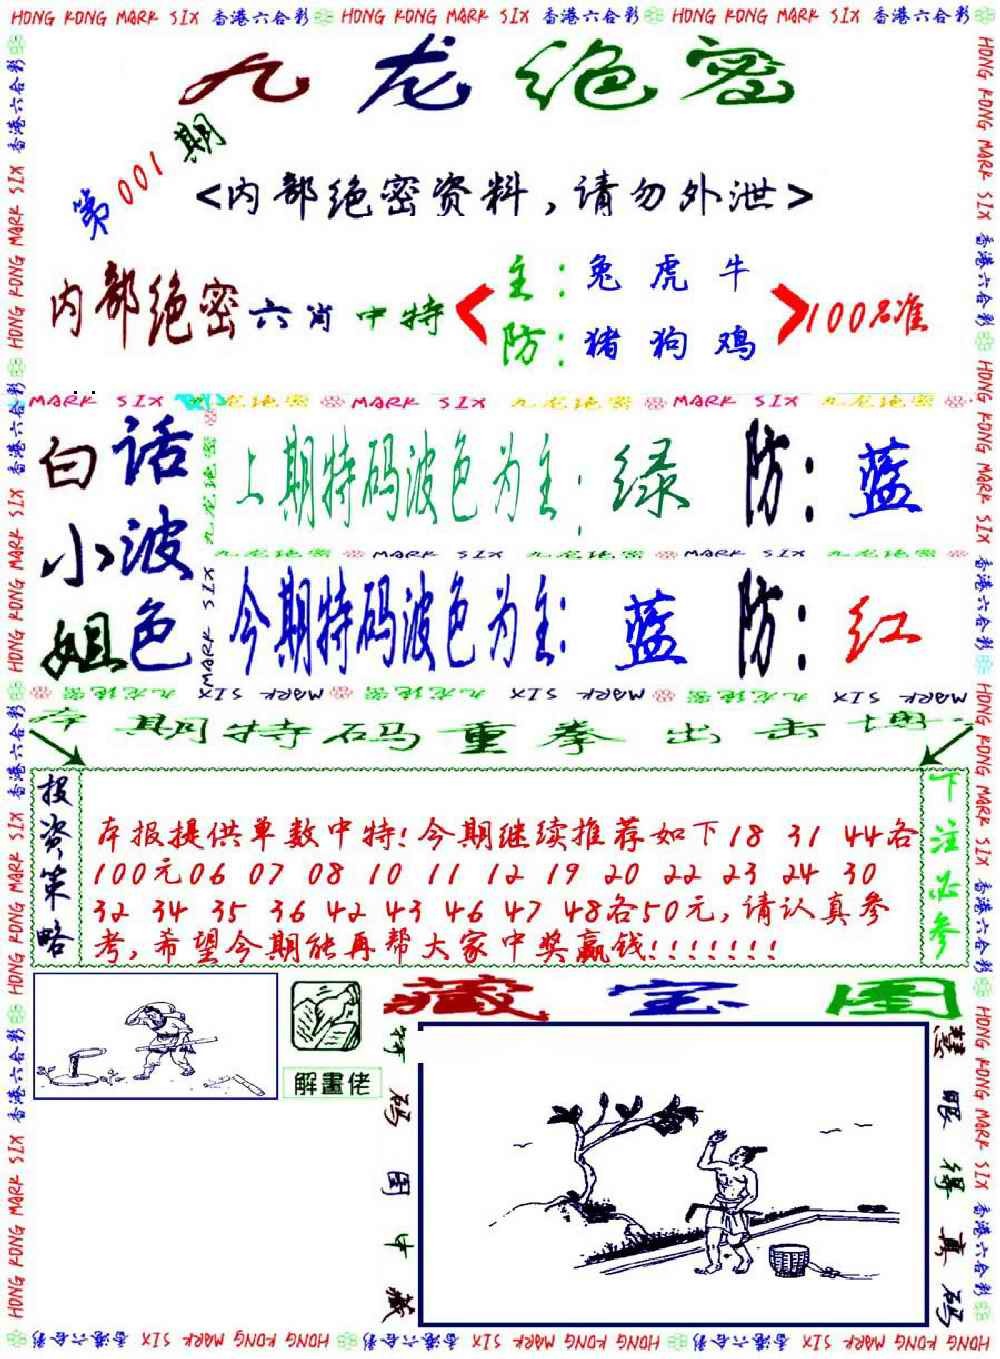 HONG KONG MARK SIX 香港六合彩 HONG KONG MARK SIX 香港六合彩 HONG KONG MARK SIX 香港六合彩
九龙绝密
第001期
<内部绝密资料,请勿外泄>
内部绝密六肖中特
主:兔虎牛
防:猪狗鸡
100%准
MARK SIX 九龙绝密 MARK SIX 九龙绝密 MARK SIX 九龙绝密
白小姐
话波色
上期特码波色为主:绿 防:蓝
九龙绝密 MARK SIX 九龙绝密 MARK SIX 九龙绝密
今期特码波色为主:蓝 防:红
九龙绝密 MARK SIX 九龙绝密 MARK SIX 九龙绝密 MARK SIX
本期特码重拳出击
投资策略
本报提供单数中特!今期继续推荐如下18 31 44各
100元06 07 08 10 11 12 19 20 22 23 24 30
32 34 35 36 42 43 46 47 48各50元,请认真参
考,希望今期能再帮大家中奖赢钱!!!!!!!
下注必参
藏宝图
解畫佬
特码图中藏
慧眼得真码
HONG KONG MARK SIX 香港六合彩 HONG KONG MARK SIX 香港六合彩 HONG KONG MARK SIX 香港六合彩